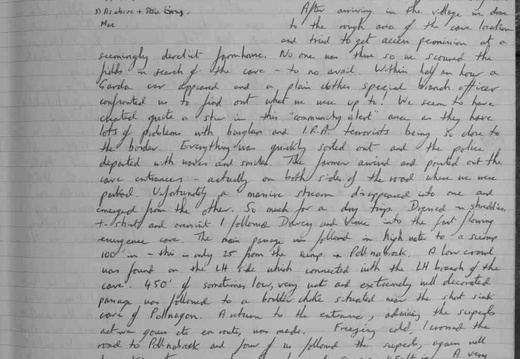 3) As above + Steve
After arriving in the village in
Mac
to the rough area of the cave location
and tried to get access permission at a
seemingly derelict farmhouse. No one was there so we scoured the
fields in search of the cave - to no avail. Within half an hour a
Garda car appeared and a plain clothes special branch officer
confronted us to find out what we were up to! We seem to have
created quite a stir in this "community alert" area as they have
lots of problems with burglars and I.R.A. terrorists being so close to
the border. Everything was quickly sorted out and the police
departed with waves and smiles. The farmer arrived and pointed out the
cave entrances - actually on both sides of the road where we were
parked. Unfortunately a massive stream disappeared into one and
emerged from the other. So much for a dry trip. Dressed in
t-shirt and oversuit I followed Darcy and into the fast flowing
resurgence cave. The main passage was followed in high water to a sump
100' in - this is only 25 from the sump in Pollnabrack. A low crawl
was found on the LH side which connected with the LH branch of the
cave. 450' of sometimes low, very wet and extremely well decorated
passage was followed to a boulder choke situated near the short sink
cave of Pollnagon. A return to the entrance, admiring the superb
active en route, was made. Freezing cold, I crossed the
road to Pollnabrack and four of us followed the superb, again well
very